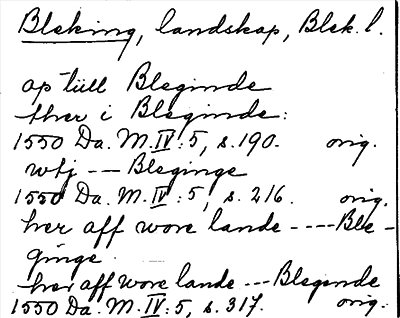 Bleking, landskap, Blek. l.
op till Bleginde
ther i Bleginde:
1550 Da. M. IV: 5, s. 190. orig.
wtj -- Bleginge
1550 Da. M. IV: 5, s. 216. orig.
her aff wore lande ---- Ble-
ginge.
her aff wore lande --- Blegende
1550 Da. M. IV: 5, s. 317. orig.